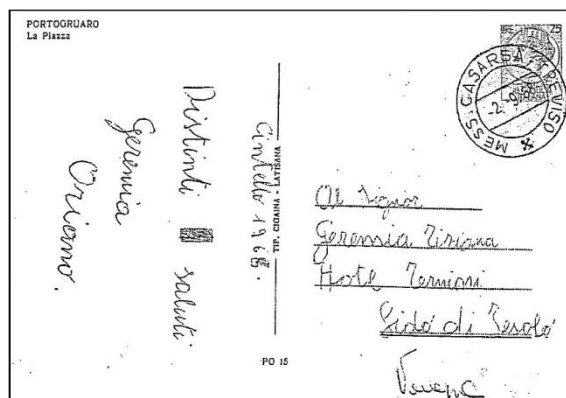 PORTOGRUARO
La Piazza
LIRE 25
MESS. CASARSA - TREVISO
-2.-9.68
Distinti saluti
Geremia
Oriano.
Cintello 1968.
TIP. CIGAINA - LATISANA
Al Signor
Geremia Tiziana
Hotel
Lido di Jesolo
PO 15